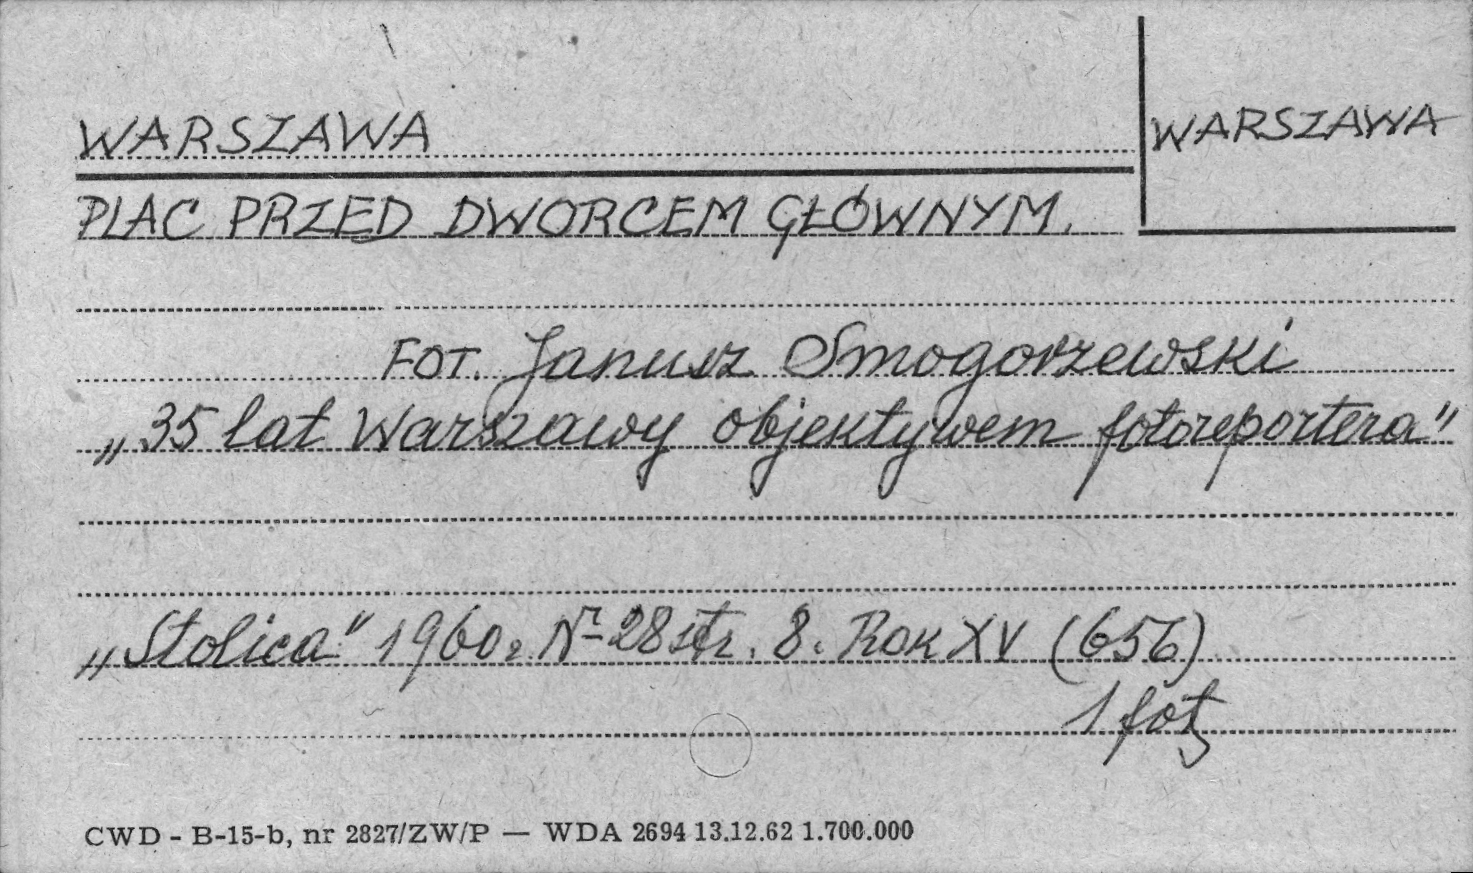 WARSZAWA
WARSZAWA
PLAC PRZED DWORCEM GŁÓWNYM.
FOT. Janusz Smogorzewski
„35 lat Warszawy objektywem fotoreportera"
„Stolica" 1960r. Nr 28 str. 8. Rok XV (656)
1 fot.
CWD - B-15-b, nr 2827/ZW/P — WDA 2694 13.12.62 1.700.000